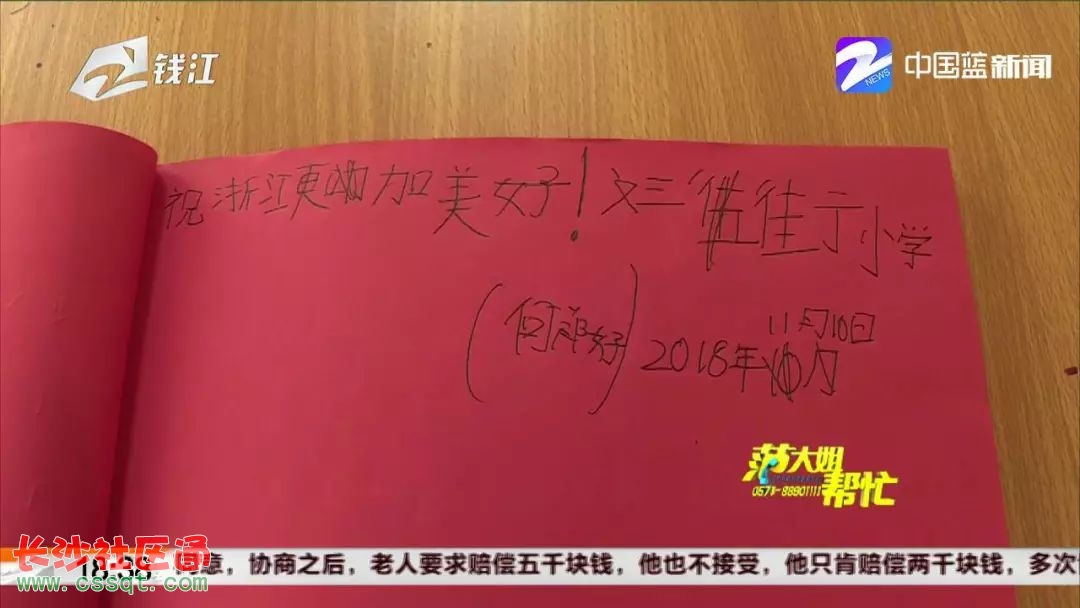 钱江
NEWS
中国蓝新闻
祝浙江更加美好！文三街小学
（何 好）
11月10日
2018年 月
范大姐
帮忙
0571-88901111
长沙社区通
www.cssqt.com
18:38
同意，协商之后，老人要求赔偿五千块钱，他也不接受，他只肯赔偿两千块钱，多次